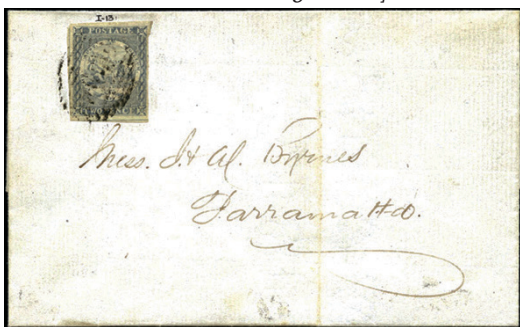 I-13
POSTAGE
Mess. J. & W. Byrnes
Parramatta.